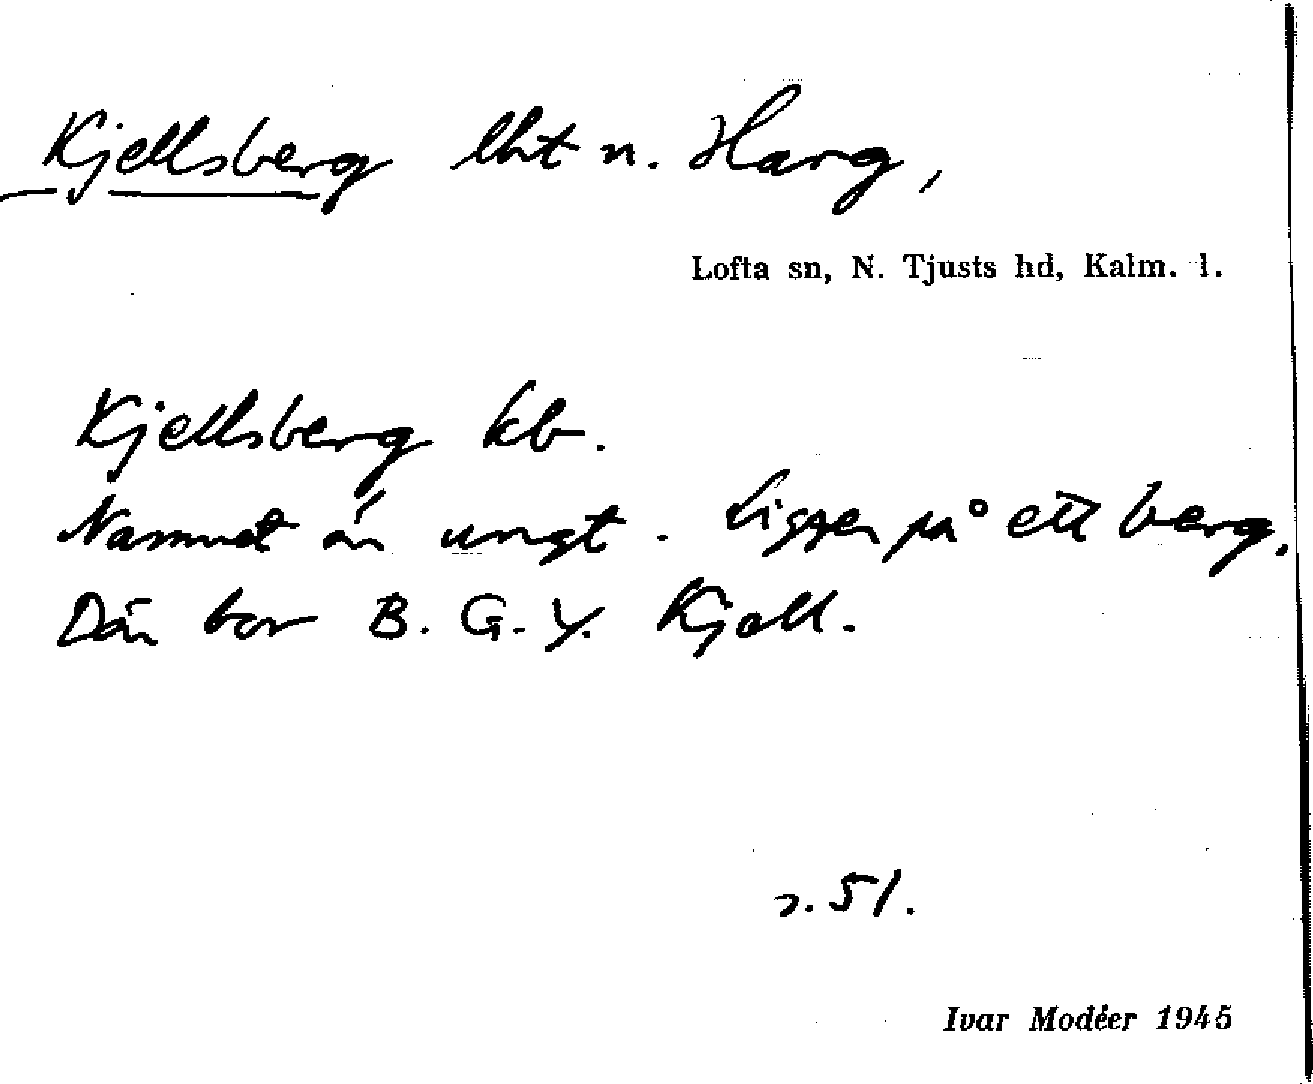 Kjellsberg lht n. Harg,
Lofta sn, N. Tjusts hd, Kalm. l.
Kjellsberg kb.
Namnet är ungt. Ligger på ett berg.
Där bor B. G. Y. Kjell.
s. 51.
Ivar Modéer 1945